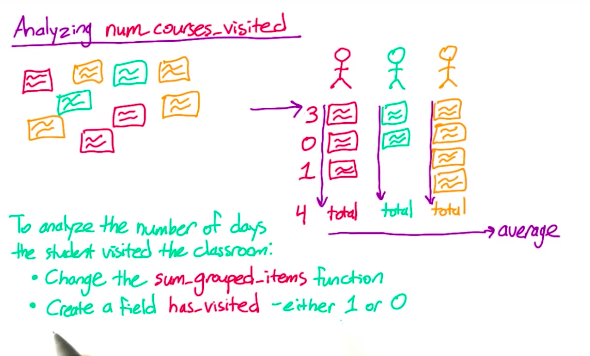 Analyzing num_courses_visited
3
0
1
4 total total total
average
To analyze the number of days
the student visited the classroom:
• Change the sum_grouped_items function
• Create a field has_visited - either 1 or 0